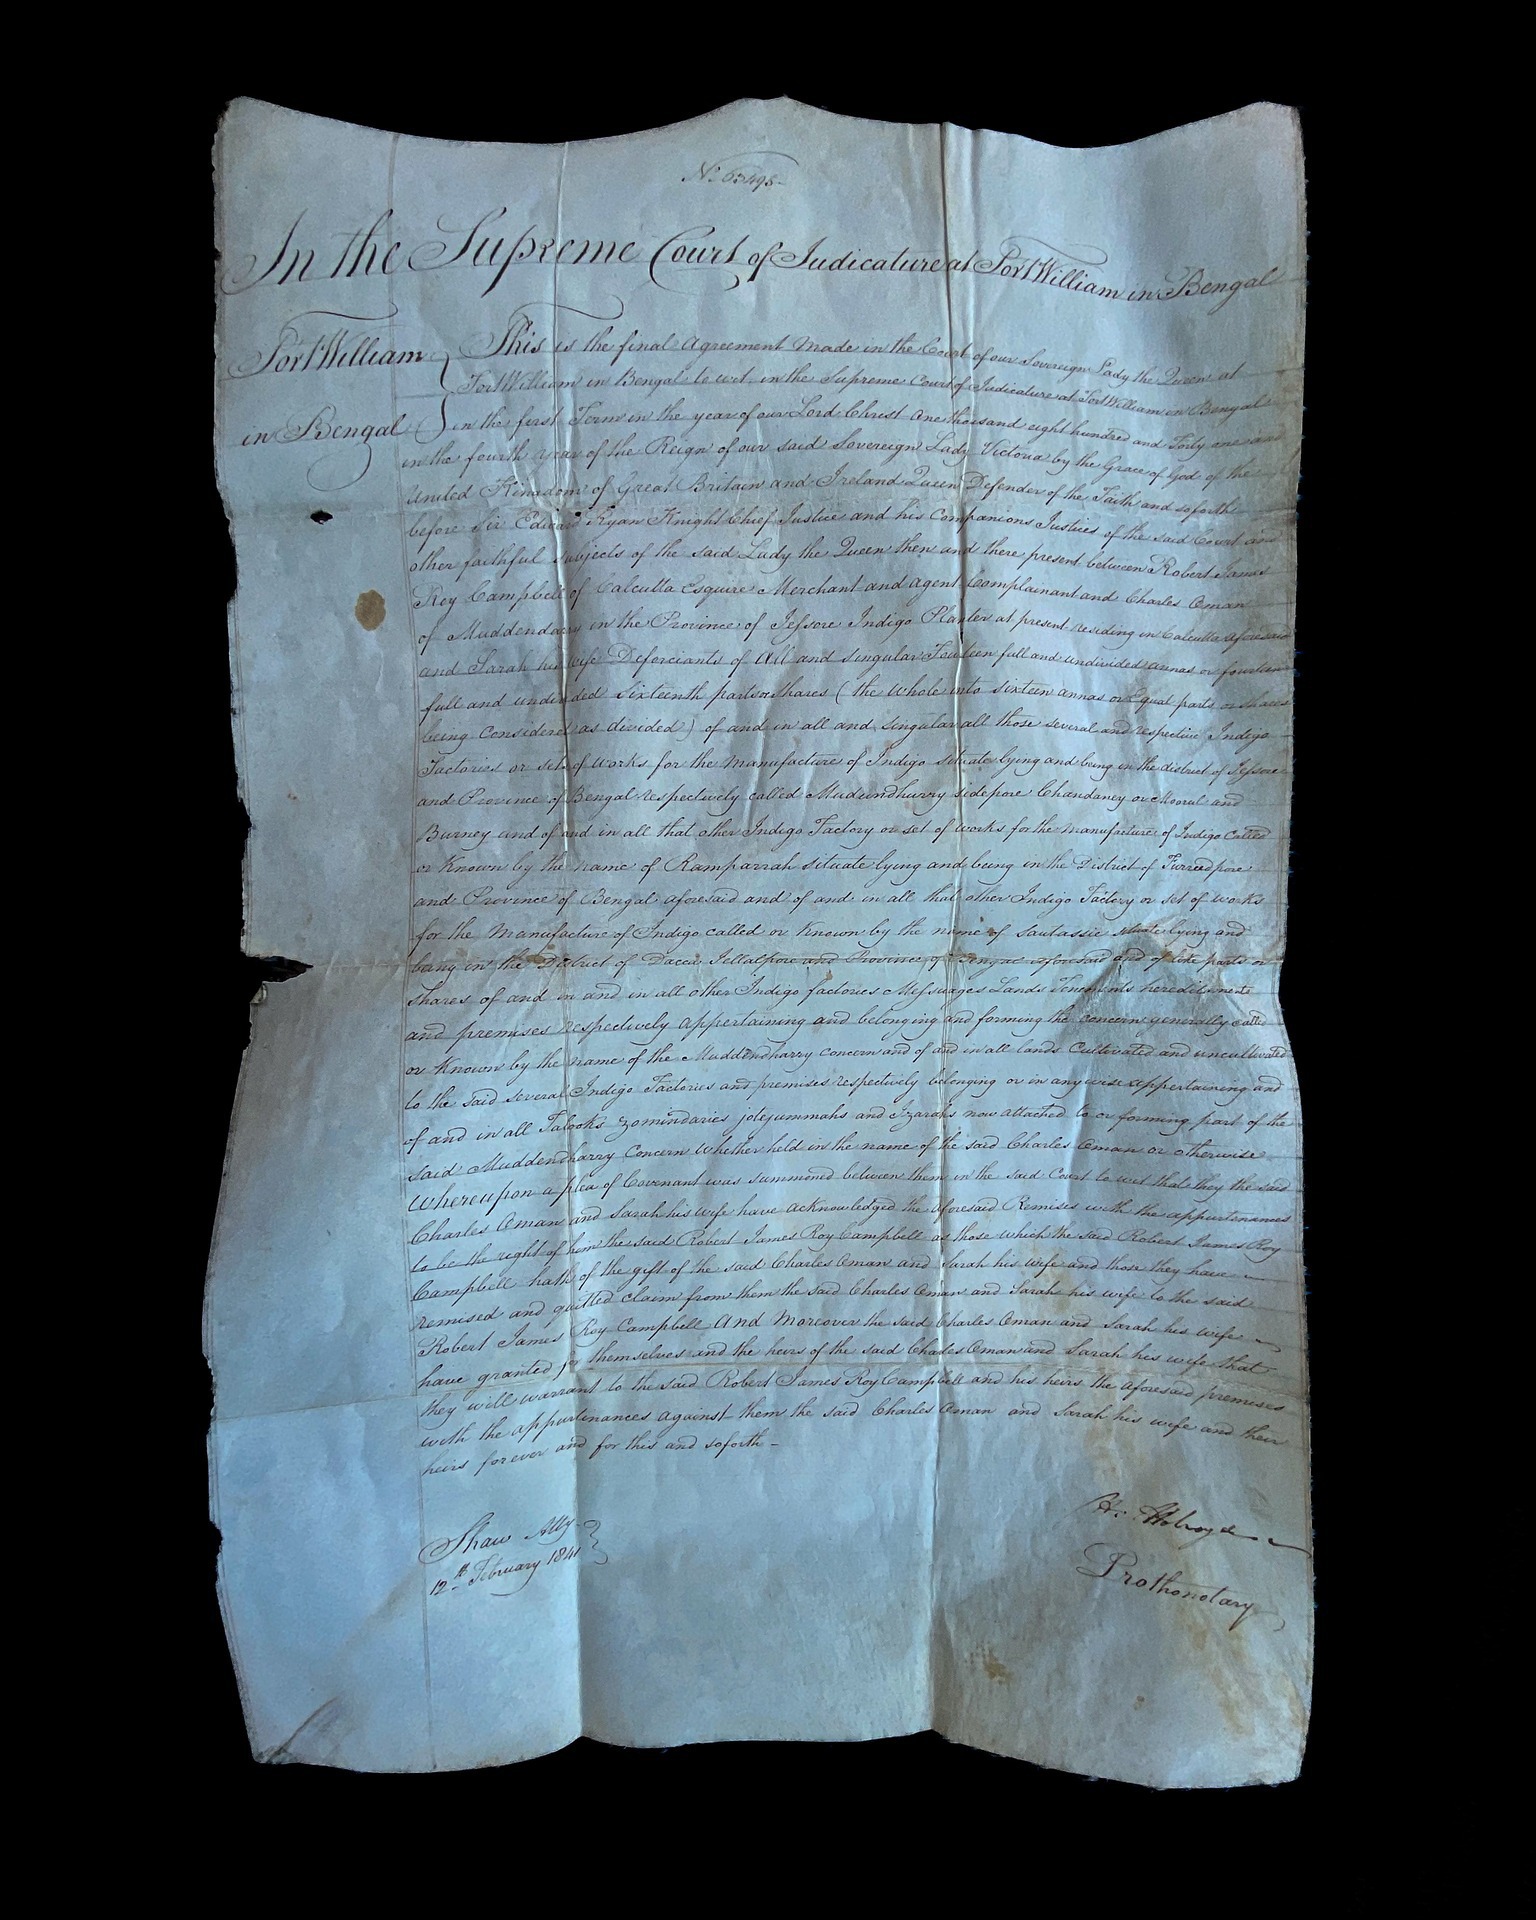 In the Supreme Court of Judicature at Fort William in Bengal
Fort William
in Bengal
This is the final Agreement Made in the Court of our Sovereign Lady the Queen at
Fort William in Bengal to wit in the Supreme Court of Judicature at Fort William in Bengal
in the first Term in the year of our Lord Christ One thousand eight hundred and Forty one and
in the fourth year of the Reign of our said Sovereign Lady Victoria by the Grace of God of the
United Kingdom of Great Britain and Ireland Queen Defender of the Faith and soforth
before Sir Edward Ryan Knight Chief Justice and his Companions Justices of the said Court and
other faithful subjects of the said Lady the Queen then and there present between Robert James
Roy Campbell of Calcutta Esquire Merchant and agent Complainant and Charles Oman
of Muddendarry in the Province of Jessore Indigo Planter at present residing in Calcutta aforesaid
and Sarah his wife Deforciants of All and singular Fourteen full and undivided annas or fourteen
full and undivided sixteenth parts or shares ( the whole into sixteen annas or Equal parts or shares
being Considered as divided ) of and in all and singular all those several and respective Indigo
Factories or sets of works for the manufacture of Indigo situate lying and being in the district of Jessore
and Province of Bengal respectively called Mudundhurry sidepore Chandaney or Moorul and
Burney and of and in all that other Indigo Factory or set of works for the manufacture of Indigo called
or Known by the name of Ramparrah situate lying and being in the District of Furreedpore
and Province of Bengal aforesaid and of and in all that other Indigo Factory or set of works
for the manufacture of Indigo called or Known by the name of Sautassie situate lying and
being in the District of Dacca Jellalpore and Province of Bengal aforesaid and of like parts or
shares of and in and in all other Indigo factories Messuages Lands Tenements hereditaments
and premises respectively appertaining and belonging and forming the concern generally called
or Known by the name of the Muddendharry concern and of and in all lands Cultivated and uncultivated
to the said several Indigo Factories and premises respectively belonging or in any wise appertaining and
of and in all Talooks zomindaries jotejummahs and Izarahs now attached to or forming part of the
said Muddendharry Concern whether held in the name of the said Charles Oman or otherwise
Whereupon a plea of Covenant was summoned between them in the said Court to wit that they the said
Charles Oman and Sarah his wife have acknowledged the aforesaid Remises with the appurtenances
to be the right of him the said Robert James Roy Campbell as those which the said Robert James Roy
Campbell hath of the gift of the said Charles Oman and Sarah his wife and those they have
remised and quitted claim from them the said Charles Oman and Sarah his wife to the said
Robert James Roy Campbell And Moreover the said Charles Oman and Sarah his wife
have granted for themselves and the heirs of the said Charles Oman and Sarah his wife that
they will warrant to the said Robert James Roy Campbell and his heirs the aforesaid premises
with the appurtenances against them the said Charles Oman and Sarah his wife and their
heirs for ever and for this and soforth -
Shaw Atty
12th February 1841
H. Holroyd
Prothonotary